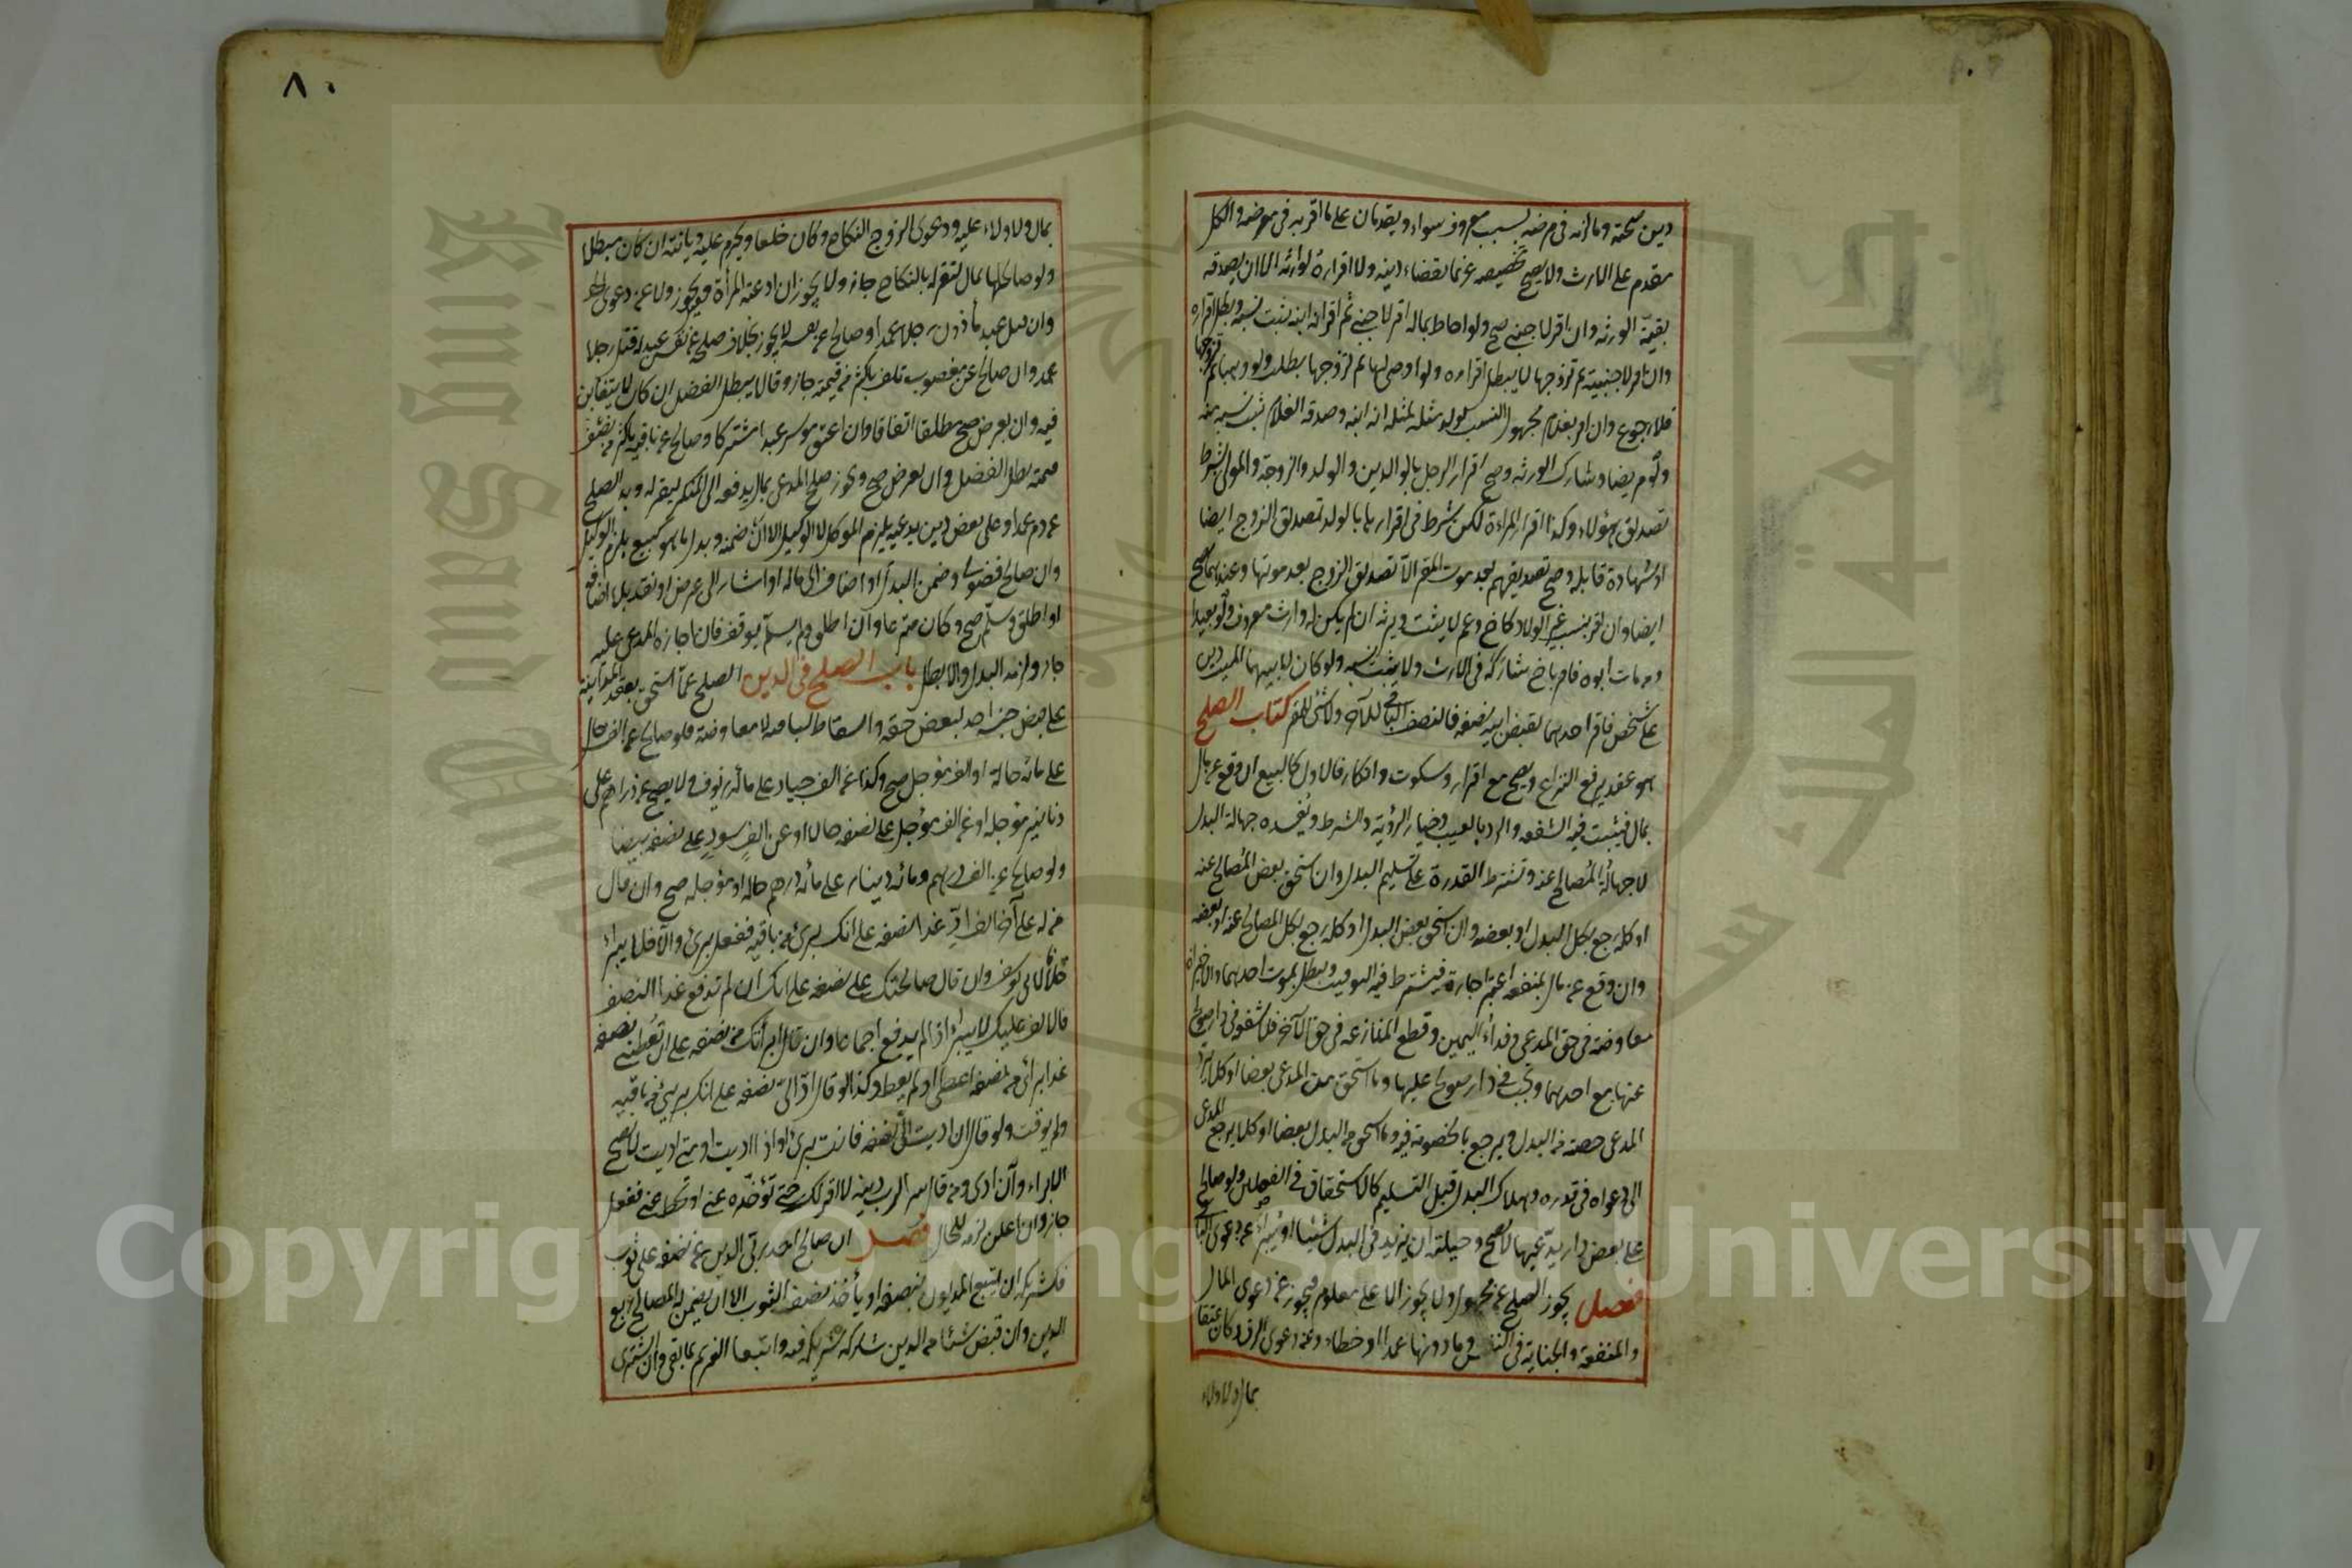 دين صحته وما لزمه في مرضه بسبب معروف سواء ويقدمان على ما اقر به في مرضه والكل
مقدم على الارث ولا يصح تخصيصه غريما بقضاء دينه ولا اقراره لوارثه الا ان يصدقه
بقية الورثة وان اقر لاجنبي صح ولو احاط بماله اقر لاجنبي ثم اقر انه ابنه يثبت نسبه وبطل اقراره
وان اقر لاجنبية ثم تزوجها لا يبطل اقراره ولو اوصى لها ثم تزوجها بطلت ولو وهبها ثم تزوجها
فلا رجوع وان اقر بغلام مجهول النسب يولد مثله لمثله انه ابنه وصدقه الغلام ثبت نسبه منه
ولو مريضا وشارك الورثة وصح اقرار الرجل بالوالدين والولد والزوجة والمولى بشرط
تصديق هؤلاء وكذا اقرار المراءة لكن شرط في اقرارها بالولد تصديق الزوج ايضا
او شهادة قابلة وصح تصديقهم بعد موت المقر الا تصديق الزوج بعد موتها وعندهما يصح
ايضا وان اقر بنسب غير الولاد كاخ وعم لا يثبت ويرثه ان لم يكن له وارث معروف ولو بعيدا
ومن مات ابوه فاقر باخ شاركه في الارث ولا يثبت نسبه ولو كان لابيهما الميت دين
على شخص فاقر احدهما بقبض ابيه نصفه فالنصف الباقي للآخر ولا شئ للمقر كتاب الصلح
هو عقد يرفع النزاع ويصح مع اقرار وسكوت وانكار فالاول كالبيع ان وقع عن مال
بمال فيثبت فيه الشفعة والرد بالعيب وخيار الرؤية والشرط ويفسده جهالة البدل
لا جهالة المصالح عنه وتشترط القدرة على تسليم البدل وان استحق بعض المصالح عنه
او كله رجع بكل البدل او بعضه وان استحق بعض البدل او كله رجع بكل المصالح عنه او بعضه
وان وقع عن مال بمنفعة اعتبر اجارة فيشترط فيه التوقيت ويبطل بموت احدهما والاخيران
معاوضة في حق المدعي وفداء اليمين وقطع المنازعة في حق الآخر فلا شفعة في دار صولح
عنها مع احدهما وتجب في دار صولح عليها وما استحق من المدعى بعضا او كلا يرد
المدعي حصته من البدل ويرجع بالخصومة فيه وما استحق من البدل بعضا او كلا يرجع المدعي
الى دعواه في قدره وهلاك البدل قبل التسليم كالاستحقاق في الفصلين ولو صالح
على بعض دار يدعيها لا يصح وحيلته ان يزيد في البدل شيئا او يبرأ عن دعوى الباقي
فصل يجوز الصلح عن مجهول ولا يجوز الا على معلوم فيجوز عن دعوى المال
والمنفعة والجناية في النفس وما دونها عمدا او خطاء وعن دعوى الرق وكان عتقا
بمال ولا ولاء
٨٠
بمال ولا ولاء عليه ودعوى الزوج النكاح وكان خلعا ويحرم عليه ديانة ان كان مبطلا
ولو صالحها بمال لتقر له بالنكاح جاز ولا يجوز ان ادعته المرأة وقيل يجوز ولا عن دعوى الحد
وان قتل عبد مأذون رجلا عمدا وصالح عن نفسه لا يجوز بخلاف صلحه عن نفس عبد له قتل رجلا
عمدا وان صالح عن مغصوب تلف باكثر من قيمته جاز وقالا يبطل الفضل ان كان لا يتغابن
فيه وان بعرض صح مطلقا اتفاقا وان اعتق موسر عبدا مشتركا وصالح عن باقيه باكثر من نصف
قيمته بطل الفضل وان بعرض صح ويجوز صلح المدعي بمال يدفعه الى المنكر ليقر له وبدل الصلح
عن دم عمد او على بعض دين يدعيه يلزم الموكل لا الوكيل الا ان ضمنه وبدل ما هو كبيع يلزم الوكيل
وان صالح فضولي وضمن البدل او اضاف الى ماله او اشار الى عرض او نقد بلا اضافة
او اطلق وسلم صح وكان متبرعا وان اطلق ولم يسلم يوقف فان اجازه المدعى عليه
جاز ولزمه البدل والا بطل باب الصلح في الدين الصلح عما استحق بعقد المداينة
على بعض جنسه اخذ لبعض حقه واسقاط لباقيه لا معاوضة فلو صالح عن الف حال
على مائة حالة او الف مؤجل صح وكذا عن الف جياد على مائة زيوف ولا يصح عن دراهم على
دنانير مؤجلة او عن الف مؤجل على نصفه حالا او عن الف سود على نصفه بيضا
ولو صالح عن الف درهم ومائة دينار على مائة درهم حالة او مؤجلة صح وان قال
من له على آخر الف ادي غدا نصفه على انك برئ من باقيه ففعل برئ والا فلا يبرأ
خلافا لابي يوسف وان قال صالحتك على نصفه على انك ان لم تدفع غدا النصف
فالالف عليك لا يبرأ اذا لم يدفع اجماعا وان قال ابرأتك من نصفه على ان تعطيني نصفه
غدا برئ من نصفه اعطى او لم يعط وكذا لو قال اد الي نصفه على انك بريئ من باقيه
ولم يوقت ولو قال ان اديت الي نصفه فانت برئ او اذا اديت او متى اديت لا يصح
الابراء وان ادى ومن قال سرا لرب دينه لا اقر لك حتى تؤخره عني او تحط عني ففعل
جاز وان اعلن لزمه للحال فصل ان صالح احد ربي الدين عن نصفه على ثوب
فلشريكه ان يتبع المديون بنصفه او يأخذ نصف الثوب الا ان يضمن له المصالح ربع
الدين وان قبض شيئا من الدين شاركه شريكه فيه واتبعا الغريم بما بقي وان اشترى
Copyright © King Saud University
King Saud University
جامعة الملك سعود
1957